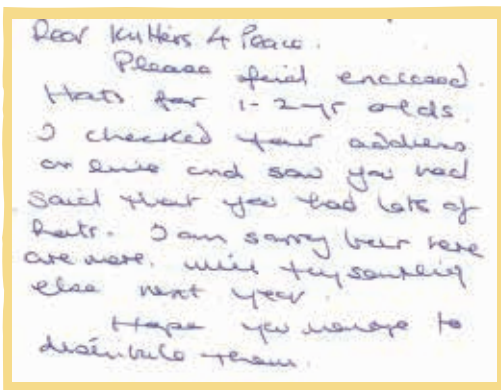 Dear Knitters 4 Peace.
Please find enclosed
Hats for 1-2yr olds.
I checked your address
on line and saw you had
said that you had lots of
hats. I am sorry but here
are more. Will try something
else next year.
Hope you manage to
distribute them.